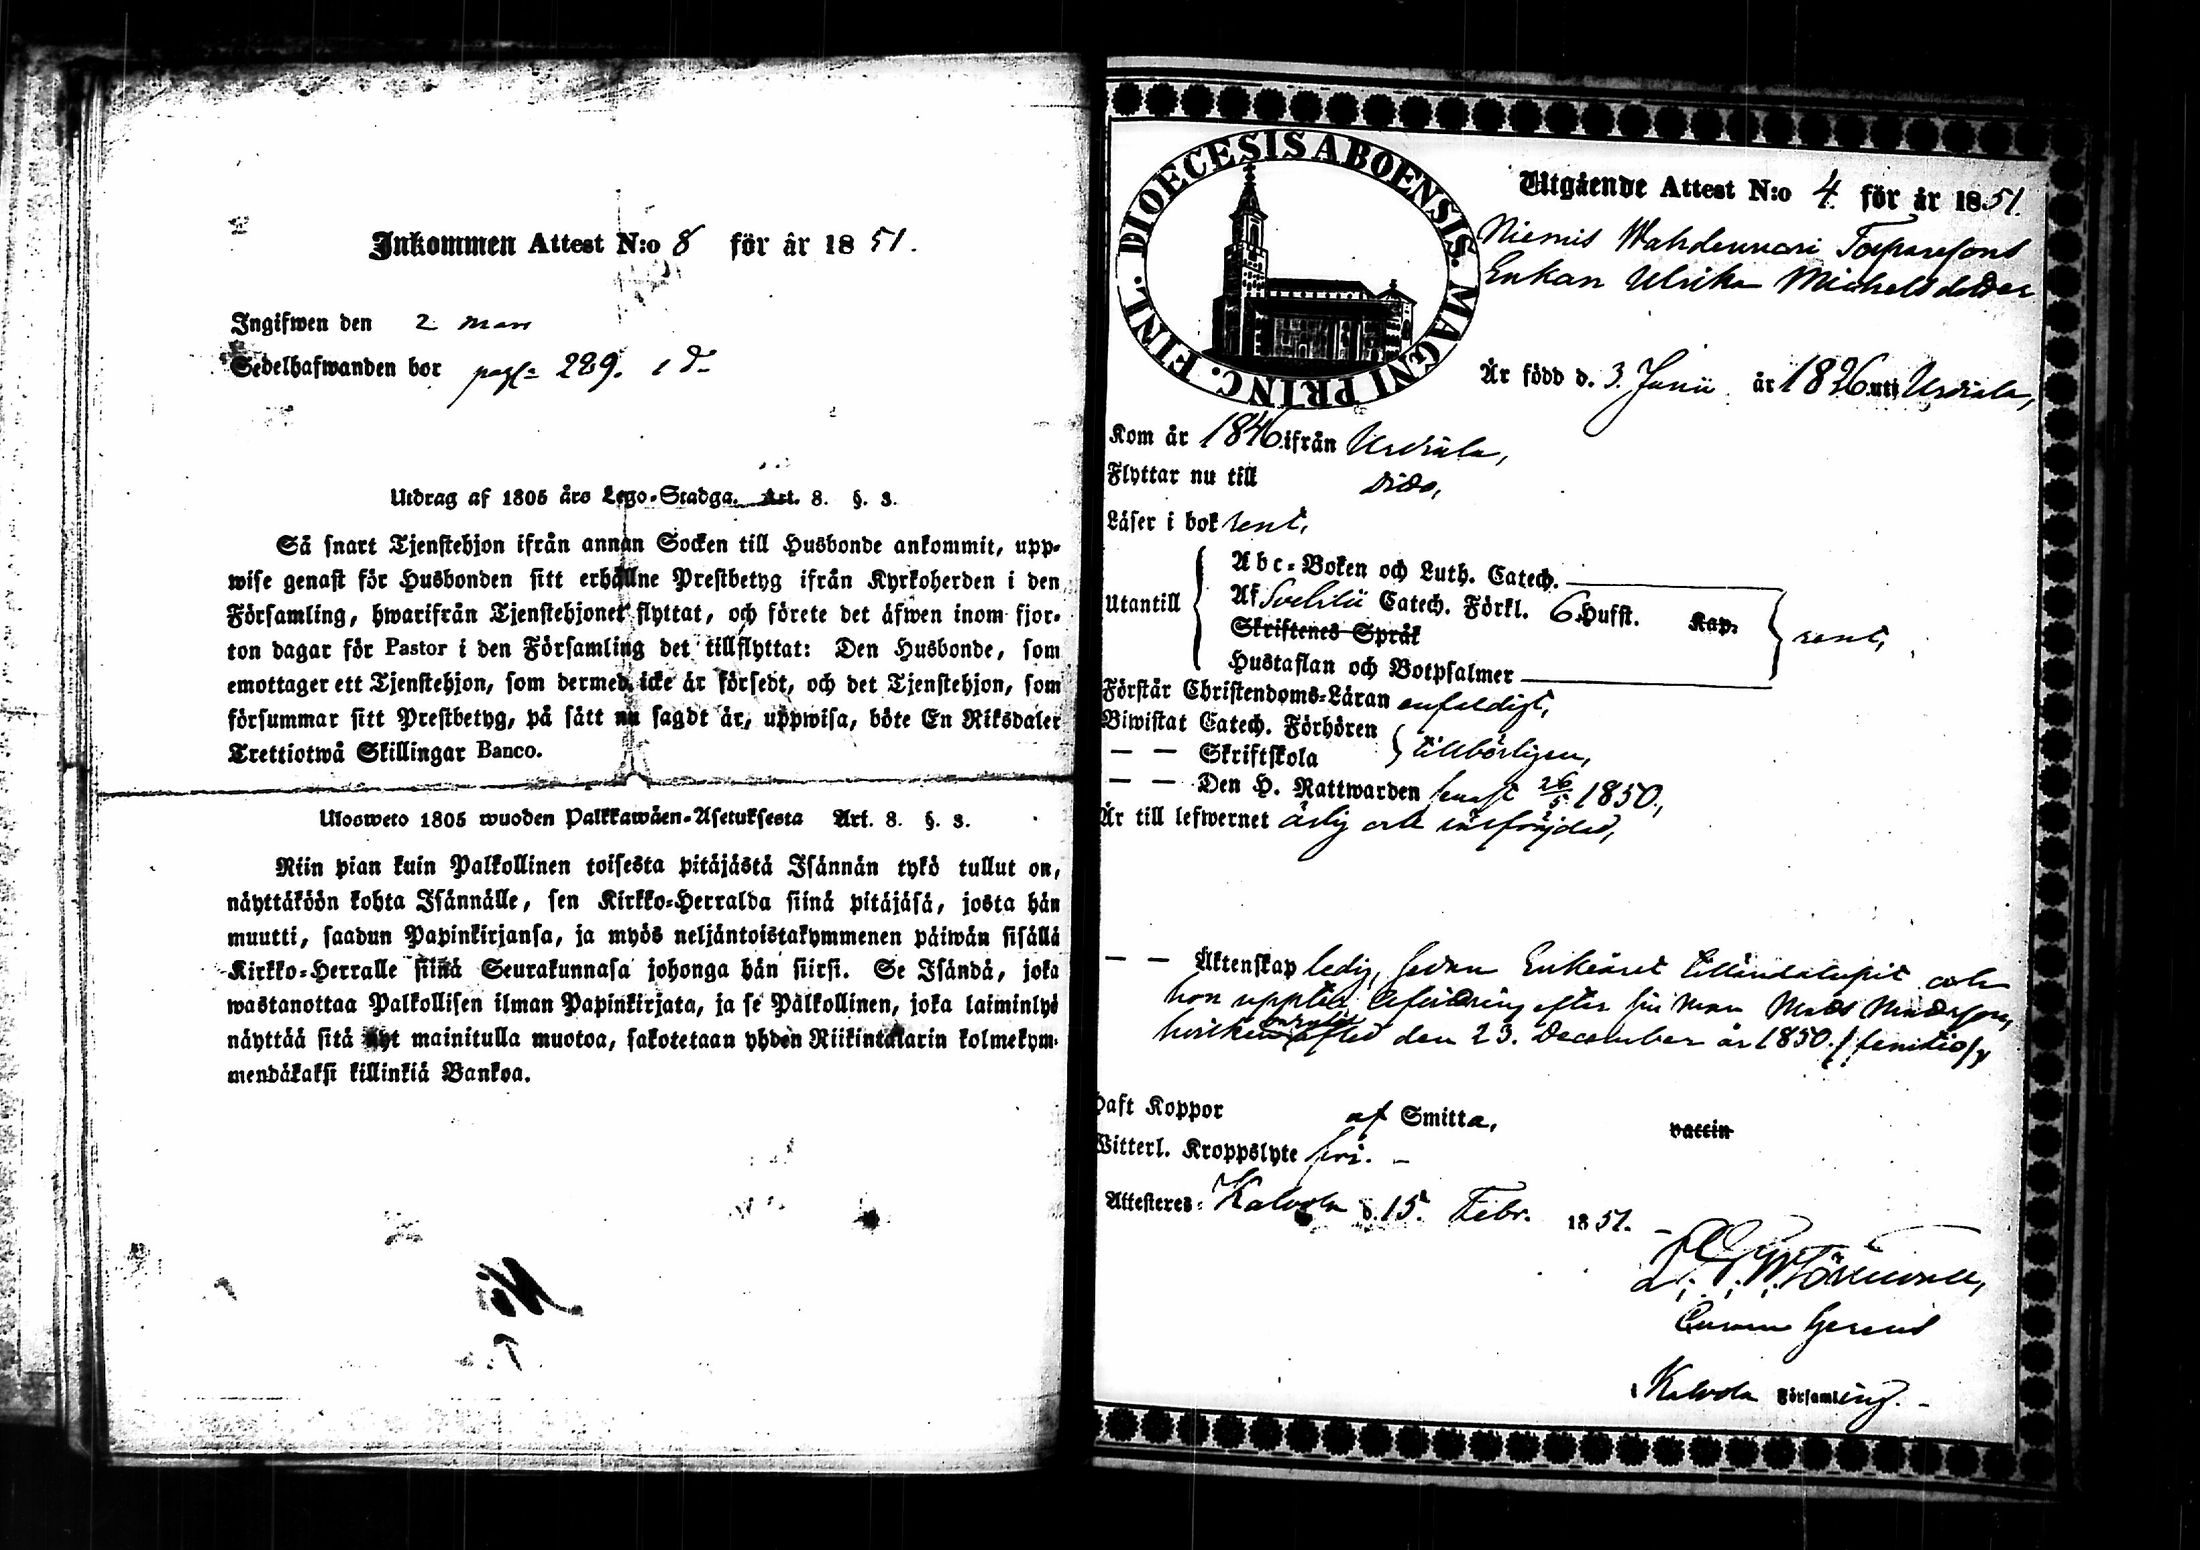 Inkommen Attest N:o 8 för år 1851.
Ingifwen den 2 mars
Sedelhafwanden bor pag: 229.
Utdrag af 1805 års Lego-Stadga. Art. 8. §. 3.
Så snart Tjenstehjon ifrån annan Socken till Husbonde ankommit, upp-
wise genast för Husbonden sitt erhållne Prestbetyg ifrån Kyrkoherden i den
Församling, hwarifrån Tjenstehjonet flyttat, och förete det äfwen inom fjor-
ton dagar för Pastor i den Församling det tillflyttat: Den Husbonde, som
emottager ett Tjenstehjon, som dermed icke är försedt, och det Tjenstehjon, som
försummar sitt Prestbetyg, på sätt nu sagdt är, uppwisa, böte En Riksdaler
Trettiotwå Skillingar Banco.
Ulosweto 1805 wuoden Palkkawäen-Asetuksesta Art. 8. §. 3.
Niin pian kuin Palkollinen toisesta pitäjästä Isännän tykö tullut on,
näyttäköön kohta Isännälle, sen Kirkko-Herralda siinä pitäjäsä, josta hän
muutti, saadun Papinkirjansa, ja myös neljäntoistakymmenen päiwän sisällä
Kirkko-Herralle siinä Seurakunnasa johonga hän siirsi. Se Isändä, joka
wastanottaa Palkollisen ilman Papinkirjata, ja se Palkollinen, joka laiminlyö
näyttää sitä nyt mainitulla muotoa, sakotetaan yhden Riikintalarin kolmekym-
mendäkaksi killinkiä Bankoa.
DIOECESIS ABOENSIS. MAGNI PRINC. FINL.
Utgående Attest N:o 4 för år 1851.
Niemis Wahdenwari Torparesons
Enkan Ulrika Michelsdotter
Är född d. 3. Junii år 1826 uti Urdiala,
Kom år 1846 ifrån Urdiala,
Flyttar nu till dito,
Läser i bok rent,
Abc-Boken och Luth. Catech.
Utantill Af Svebilii Catech. Förkl. 6. Hufst. Kap. rent,
Skriftenes Språk
Hustaflan och Botpsalmer
Förstår Christendoms-Läran enfaldigt,
Biwistat Catech. Förhören
— — Skriftskola tillbörligen,
— — Den H. Nattwarden senast 26/5 1850,
Är till lefwernet ärlig och wälfräjdad,
— — Äktenskap ledig, sedan Enkeåret tilländalupit och
hon upptett afwittring efter sin man Mats Matsson,
hwilken afled den 23. December år 1850.
Haft Koppor af Smitta, vaccin
Witterl. Kroppslyte fri. —
Attesteres: Kalvola d. 15. Febr. 1851. —
Kalvola Församling. —